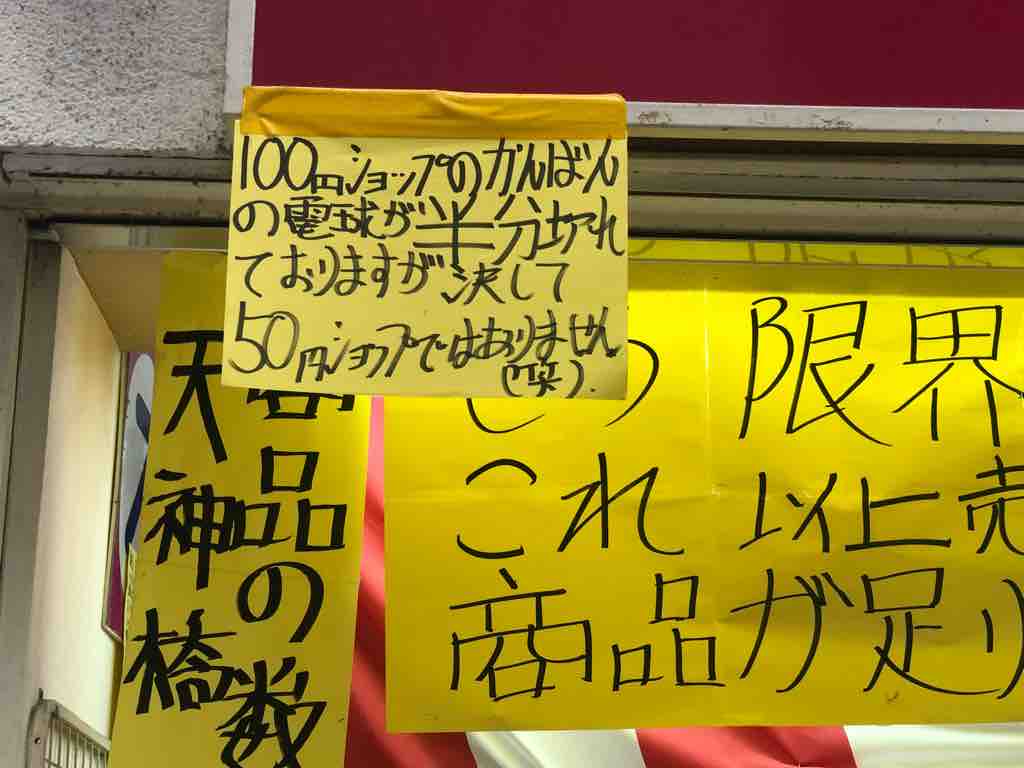 100円ショップのかんばん
の電球が半分切れ
ておりますが決して
50円ショップではありません
(笑).
限界
これ以上売
商品が足り
商品の数
天神橋